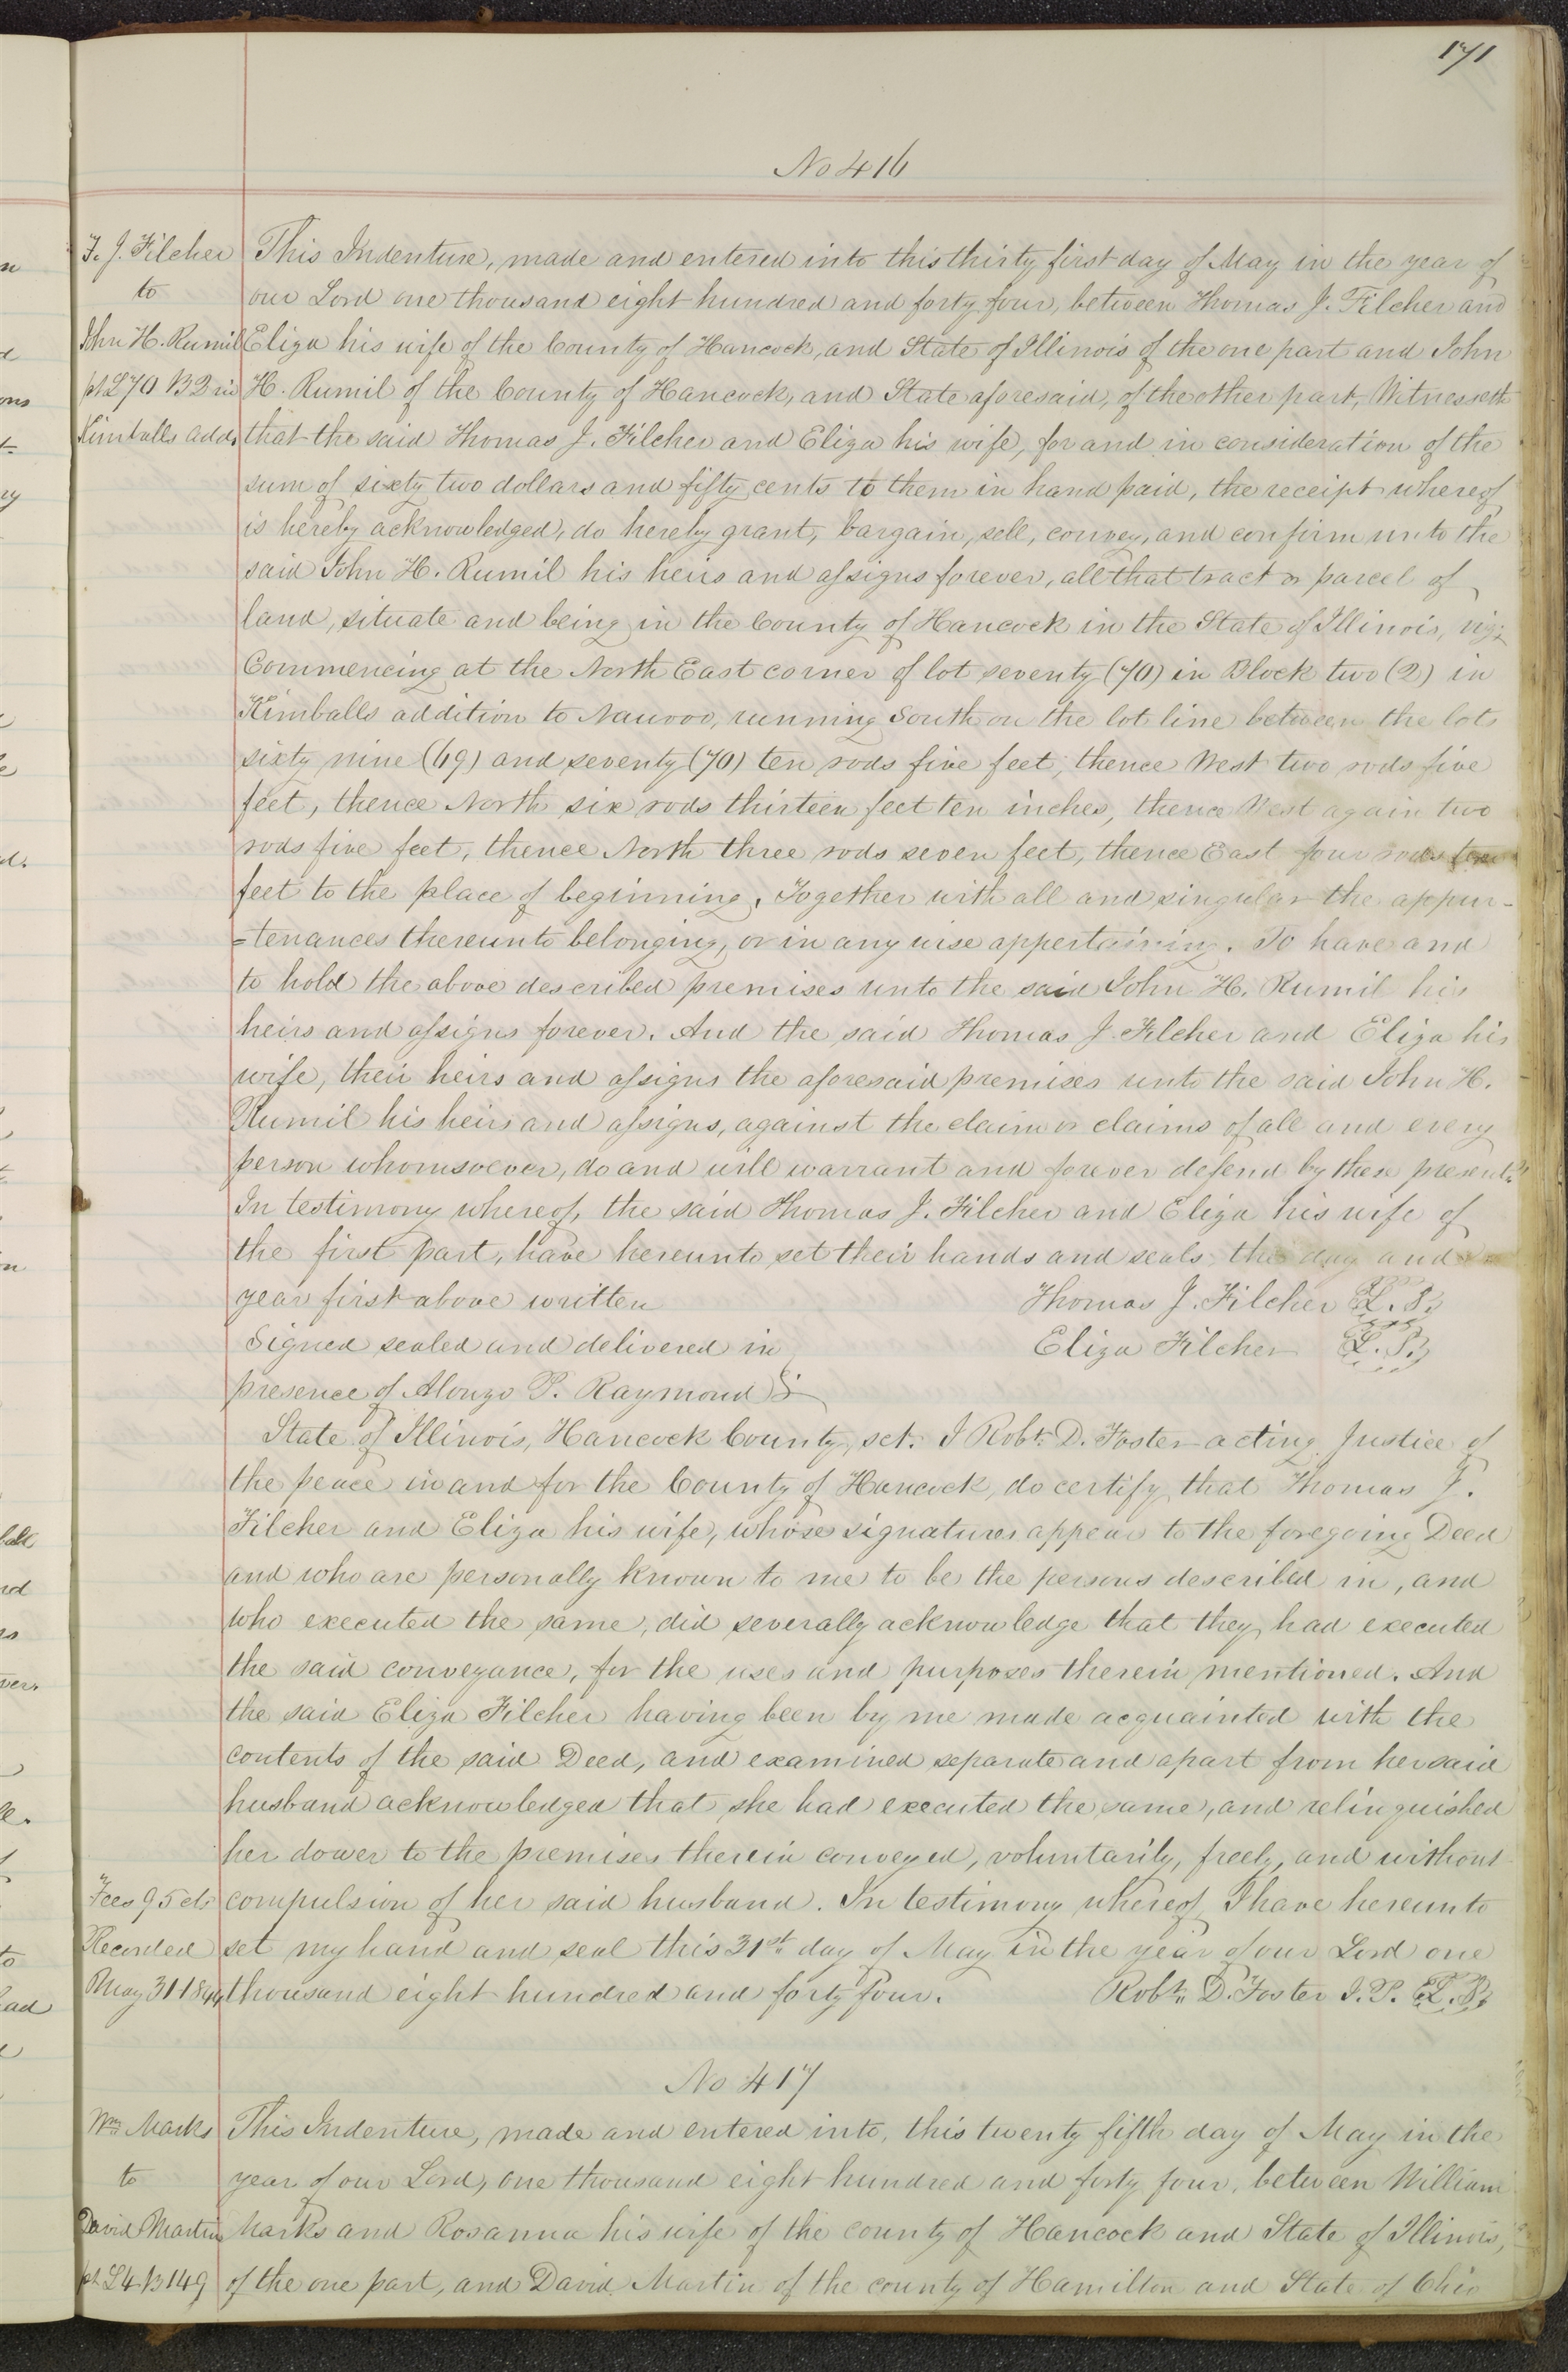 171
No 416
T. J. Filcher
to
John H. Rumil
pt L 70 B 2 in
Kimballs add.
This Indenture, made and entered into this thirty first day of May in the year of
our Lord one thousand eight hundred and forty four, between Thomas J. Filcher and
Eliza his wife of the County of Hancock, and State of Illinois of the one part and John
H. Rumil of the County of Hancock, and State aforesaid, of the other part, Witnesseth
that the said Thomas J. Filcher and Eliza his wife, for and in consideration of the
sum of sixty two dollars and fifty cents to them in hand paid, the receipt whereof
is hereby acknowledged, do hereby grant, bargain, sell, convey, and confirm unto the
said John H. Rumil his heirs and assigns forever, all that tract or parcel of
land, situate and being in the County of Hancock in the State of Illinois, viz:
Commencing at the North East corner of lot seventy (70) in Block two (2) in
Kimballs addition to Nauvoo, running South on the lot line between the lots
sixty nine (69) and seventy (70) ten rods five feet, thence West two rods five
feet, thence North six rods thirteen feet ten inches, thence West again two
rods five feet, thence North three rods seven feet, thence East four rods ten
feet to the place of beginning. Together with all and singular the appur-
=tenances thereunto belonging, or in any wise appertaining. To have and
to hold the above described premises unto the said John H. Rumil his
heirs and assigns forever. And the said Thomas J. Filcher and Eliza his
wife, their heirs and assigns the aforesaid premises unto the said John H.
Rumil his heirs and assigns, against the claim or claims of all and every
person whomsoever, do and will warrant and forever defend by these presents.
In testimony whereof, the said Thomas J. Filcher and Eliza his wife of
the first part, have hereunto set their hands and seals the day and
year first above written
Thomas J. Filcher L.S.
Signed sealed and delivered in
Eliza Filcher L.S.
presence of Alonzo P. Raymond
State of Illinois, Hancock County, sct. I Robt. D. Foster acting Justice of
the peace in and for the County of Hancock, do certify that Thomas J.
Filcher and Eliza his wife, whose signatures appear to the foregoing Deed
and who are personally known to me to be the persons described in, and
who executed the same, did severally acknowledge that they had executed
the said conveyance, for the uses and purposes therein mentioned. And
the said Eliza Filcher having been by me made acquainted with the
contents of the said Deed, and examined separate and apart from her said
husband acknowledged that she had executed the same, and relinquished
her dower to the premises therein conveyed, voluntarily, freely, and without
compulsion of her said husband. In testimony whereof, I have hereunto
set my hand and seal this 31st day of May in the year of our Lord one
thousand eight hundred and forty four.
Robt. D. Foster J.P. L.S.
Fees 95 cts
Recorded
May 31 1844
No 417
Wm Marks
to
David Martin
pt L 4 B 149
This Indenture, made and entered into, this twenty fifth day of May in the
year of our Lord, one thousand eight hundred and forty four, between William
Marks and Rosanna his wife of the county of Hancock and State of Illinois,
of the one part, and David Martin of the county of Hamilton and State of Ohio